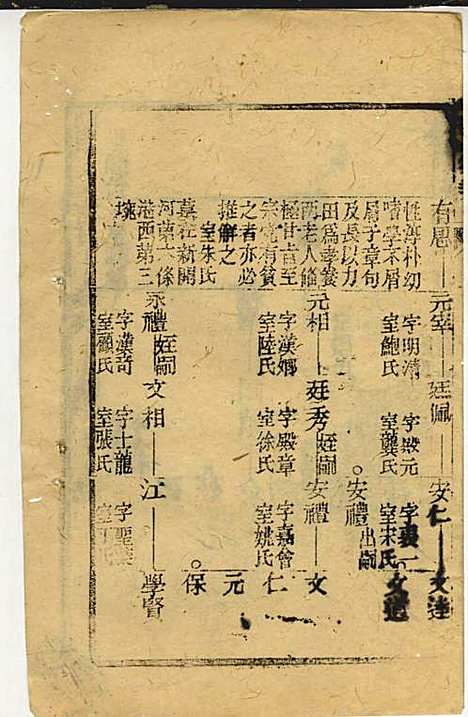 有恩 元宰 廷佩 安仁 文達
性淳朴幼 字明清 字殿元 字
嗜學不屑 室鮑氏 室龔氏 室宋氏
屑于章句
及長以力 安禮出嗣
田爲孝養
兩老人饍 元相 廷秀姪嗣 安禮 文
極甘旨至 字漢卿 字殿章 字嘉會 仁
宗党有貧 室陸氏 室徐氏 室姚氏
之者亦必 元
推解之 保
室朱氏
墓在新開 永禮姪嗣 文相 江 學賢
河南一條 字漢奇 字士龍
港西第三 室顧氏 室張氏
塊